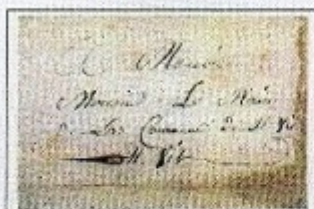 A Monsieur
Monsieur Le Maire
De La Commune de St Vit
St Vit